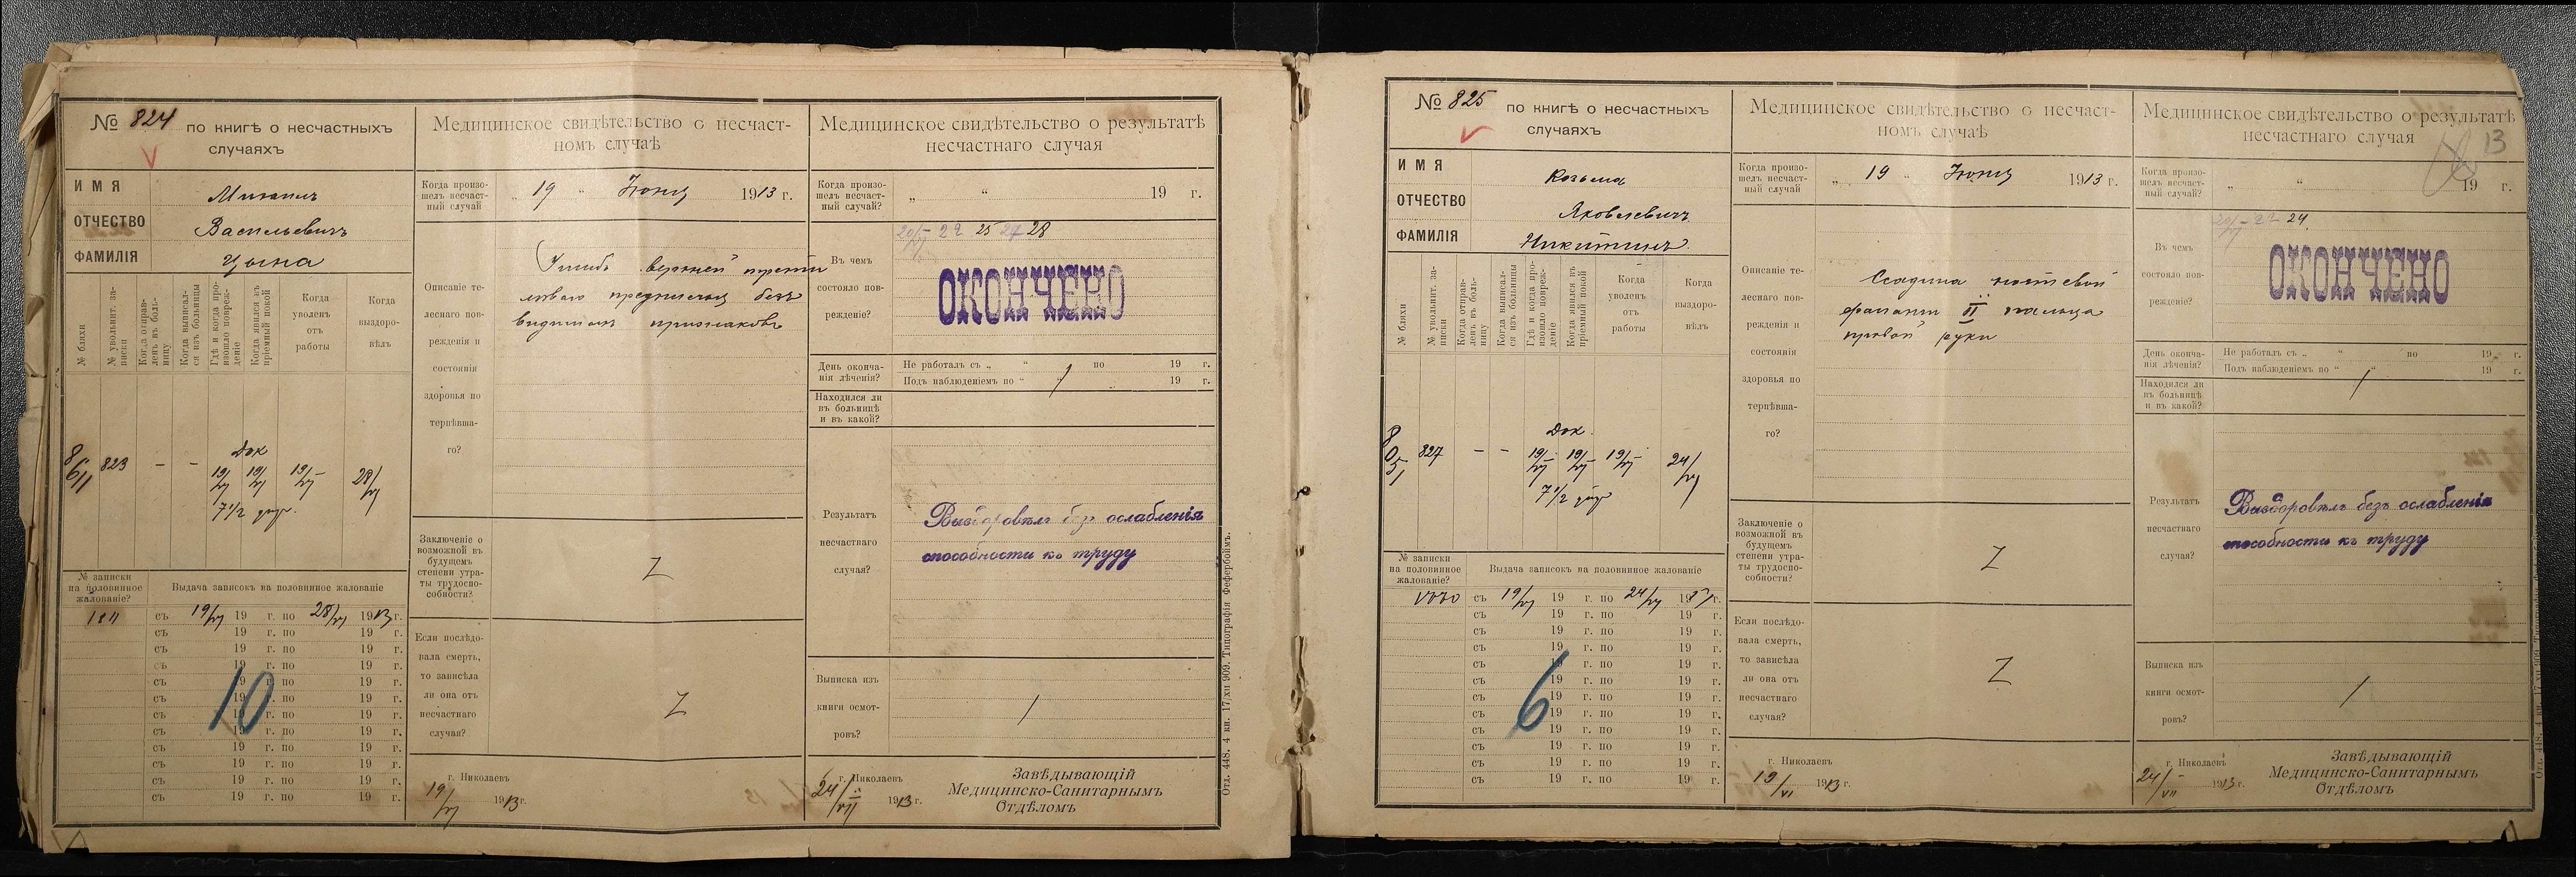 № 824 по книгѣ о несчастныхъ
случаяхъ
ИМЯ Михаилъ
ОТЧЕСТВО Васильевичъ
ФАМИЛІЯ Цына
№ бляхи
№ увольнит. за-
писки
Когда отправ-
ленъ въ боль-
ницу
Когда выписал-
ся изъ больницы
Гдѣ и когда про-
изошло повреж-
деніе
Когда явился къ
пріемный покой
Когда
уволенъ
отъ
работы
Когда
выздоро-
вѣлъ
8/611 823 – – Док 19/VI 19/VI 19/VI 28/VI
7 1/2
№ записки
на половинное
жалованіе?
Выдача записокъ на половинное жалованіе
1811 съ 19/VI 19 г. по 28/VI 1913 г.
съ 19 г. по 19 г.
съ 19 г. по 19 г.
съ 19 г. по 19 г.
съ 19 г. по 19 г.
съ 19 г. по 19 г.
съ 19 г. по 19 г.
съ 19 г. по 19 г.
съ 19 г. по 19 г.
съ 19 г. по 19 г.
съ 19 г. по 19 г.
съ 19 г. по 19 г.
10
Медицинское свидѣтельство о несчаст-
номъ случаѣ
Когда произо-
шелъ несчаст-
ный случай
„ 19 “ Іюня 1913 г.
Описаніе те-
леснаго пов-
режденія и
состоянія
здоровья по
терпѣвша-
го?
Ушибъ верхней трети
лѣваго предплечья безъ
видимыхъ признаковъ
Заключеніе о
возможной въ
будущемъ
степени утра-
ты трудоспо-
собности?
Z
Если послѣдо-
вала смерть,
то зависѣла
ли она отъ
несчастнаго
случая?
Z
г. Николаевъ
19/VI 1913 г.
Медицинское свидѣтельство о результатѣ
несчастнаго случая
Когда произо-
шелъ несчаст-
ный случай?
„ “ 19 г.
20/VI 22 25 27 28
Въ чемъ
состояло пов-
режденіе?
ОКОНЧЕНО
День оконча-
нія лѣченія?
Не работалъ съ „ “ по 19 г.
Подъ наблюденіемъ по “ 19 г.
Находился ли
въ больницѣ
и въ какой?
Результатъ
несчастнаго
случая?
Выздоровѣлъ безъ ослабленія
способности къ труду
Выписка изъ
книги осмот-
ровъ?
г. Николаевъ
24/VII 1913 г.
Завѣдывающій
Медицинско-Санитарнымъ
Отдѣломъ
Отд. 448. 4 кн. 17/хи 909. Типографія Фефербоймъ.
№ 825 по книгѣ о несчастныхъ
случаяхъ
ИМЯ Козьма
ОТЧЕСТВО Яковлевичъ
ФАМИЛІЯ Никитинъ
№ бляхи
№ увольнит. за-
писки
Когда отправ-
ленъ въ боль-
ницу
Когда выписал-
ся изъ больницы
Гдѣ и когда про-
изошло повреж-
деніе
Когда явился къ
пріемный покой
Когда
уволенъ
отъ
работы
Когда
выздоро-
вѣлъ
8/051 827 – – Док. 19/VI 19/VI 19/VI 24/VI
7 1/2
№ записки
на половинное
жалованіе?
Выдача записокъ на половинное жалованіе
съ 19/VI 19 г. по 24/VI 19 г.
съ 19 г. по 19 г.
съ 19 г. по 19 г.
съ 19 г. по 19 г.
съ 19 г. по 19 г.
съ 19 г. по 19 г.
съ 19 г. по 19 г.
съ 19 г. по 19 г.
съ 19 г. по 19 г.
съ 19 г. по 19 г.
съ 19 г. по 19 г.
съ 19 г. по 19 г.
6
Медицинское свидѣтельство о несчаст-
номъ случаѣ
Когда произо-
шелъ несчаст-
ный случай
„ 19 “ Іюня 1913 г.
Описаніе те-
леснаго пов-
режденія и
состоянія
здоровья по
терпѣвша-
го?
Ссадина ногтевой
фаланги II пальца
правой руки
Заключеніе о
возможной въ
будущемъ
степени утра-
ты трудоспо-
собности?
Z
Если послѣдо-
вала смерть,
то зависѣла
ли она отъ
несчастнаго
случая?
Z
г. Николаевъ
19/VI 1913 г.
Медицинское свидѣтельство о результатѣ
несчастнаго случая
13
Когда произо-
шелъ несчаст-
ный случай?
„ “ 19 г.
20/VI 22 24
Въ чемъ
состояло пов-
режденіе?
ОКОНЧЕНО
День оконча-
нія лѣченія?
Не работалъ съ „ “ по 19 г.
Подъ наблюденіемъ по “ 19 г.
Находился ли
въ больницѣ
и въ какой?
Результатъ
несчастнаго
случая?
Выздоровѣлъ безъ ослабленія
способности къ труду
Выписка изъ
книги осмот-
ровъ?
г. Николаевъ
24/VII 1913 г.
Завѣдывающій
Медицинско-Санитарнымъ
Отдѣломъ